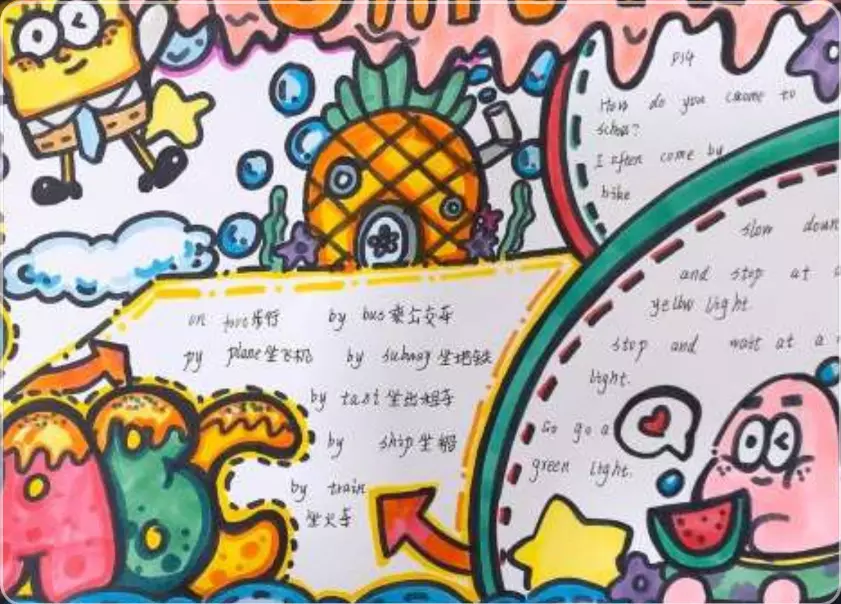 P14
How do you caome to
schoo?
I often come by
bike
slow down
and stop at a
yellow light
stop and wait at a
light.
Go go a
green light.
on foot步行 by bus乘公交车
py plane坐飞机 by subway坐地铁
by taxi坐出租车
by ship坐船
by train
坐火车
ABC